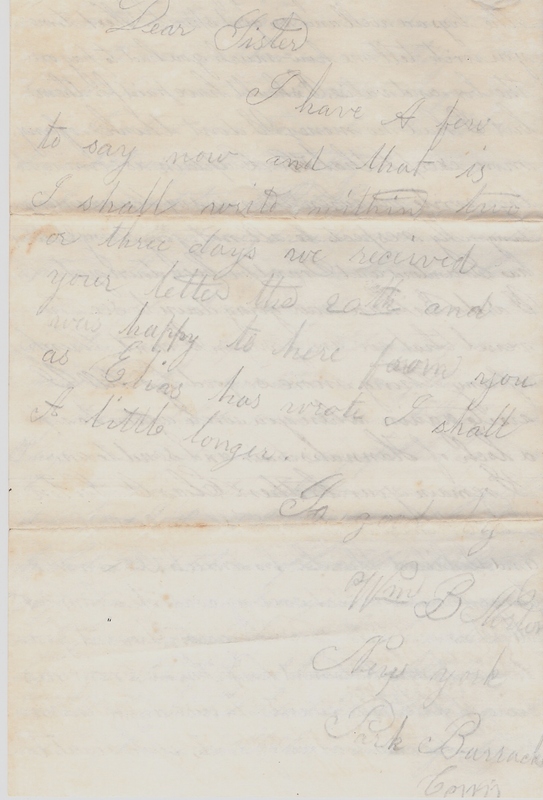 Dear Sister
I have A few
to say now and that is
I shall write within two
or three days we recived
your letter the 20th and
was happy to here from you
as Elias has wrote I shall
A little longer.
So good by
Wm B
New york
Park Barracks